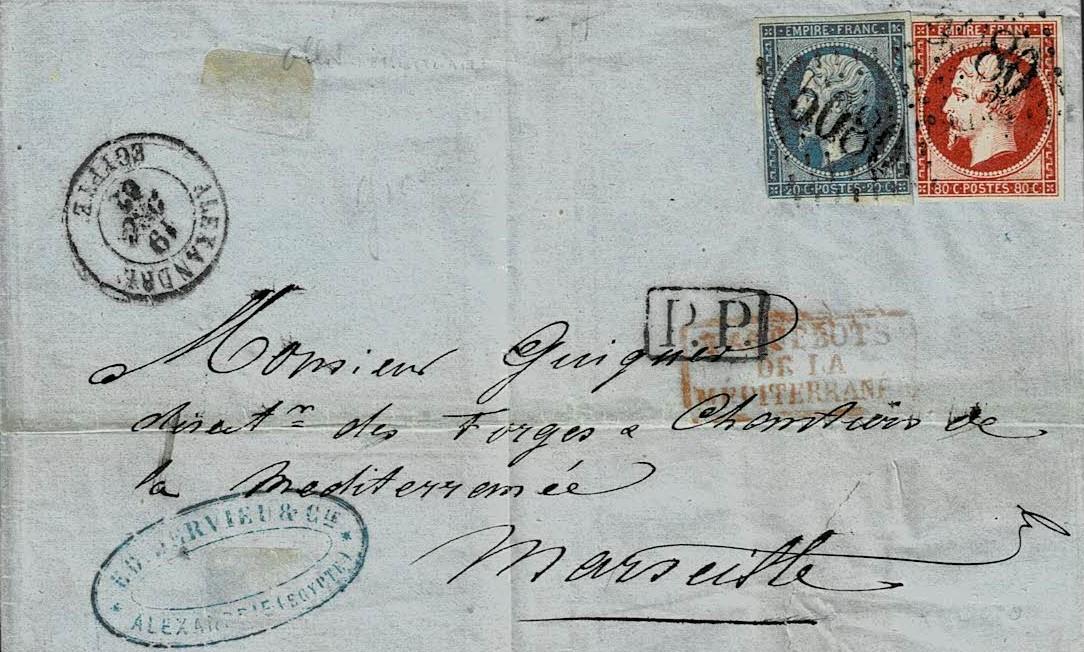 EMPIRE FRANC.
20 C. POSTES 20 C.
EMPIRE FRANC.
80 C. POSTES 80 C.
5080
ALEXANDRIE
EGYPTE
19
P.P.
PAQUEBOTS
DE LA
MÉDITERRANÉE
Monsieur Guigues
direct.^r des Forges & Chantiers de
la Mediterrannée
Marseille
ED. DERVIEU & CIE
ALEXANDRIE (EGYPTE)